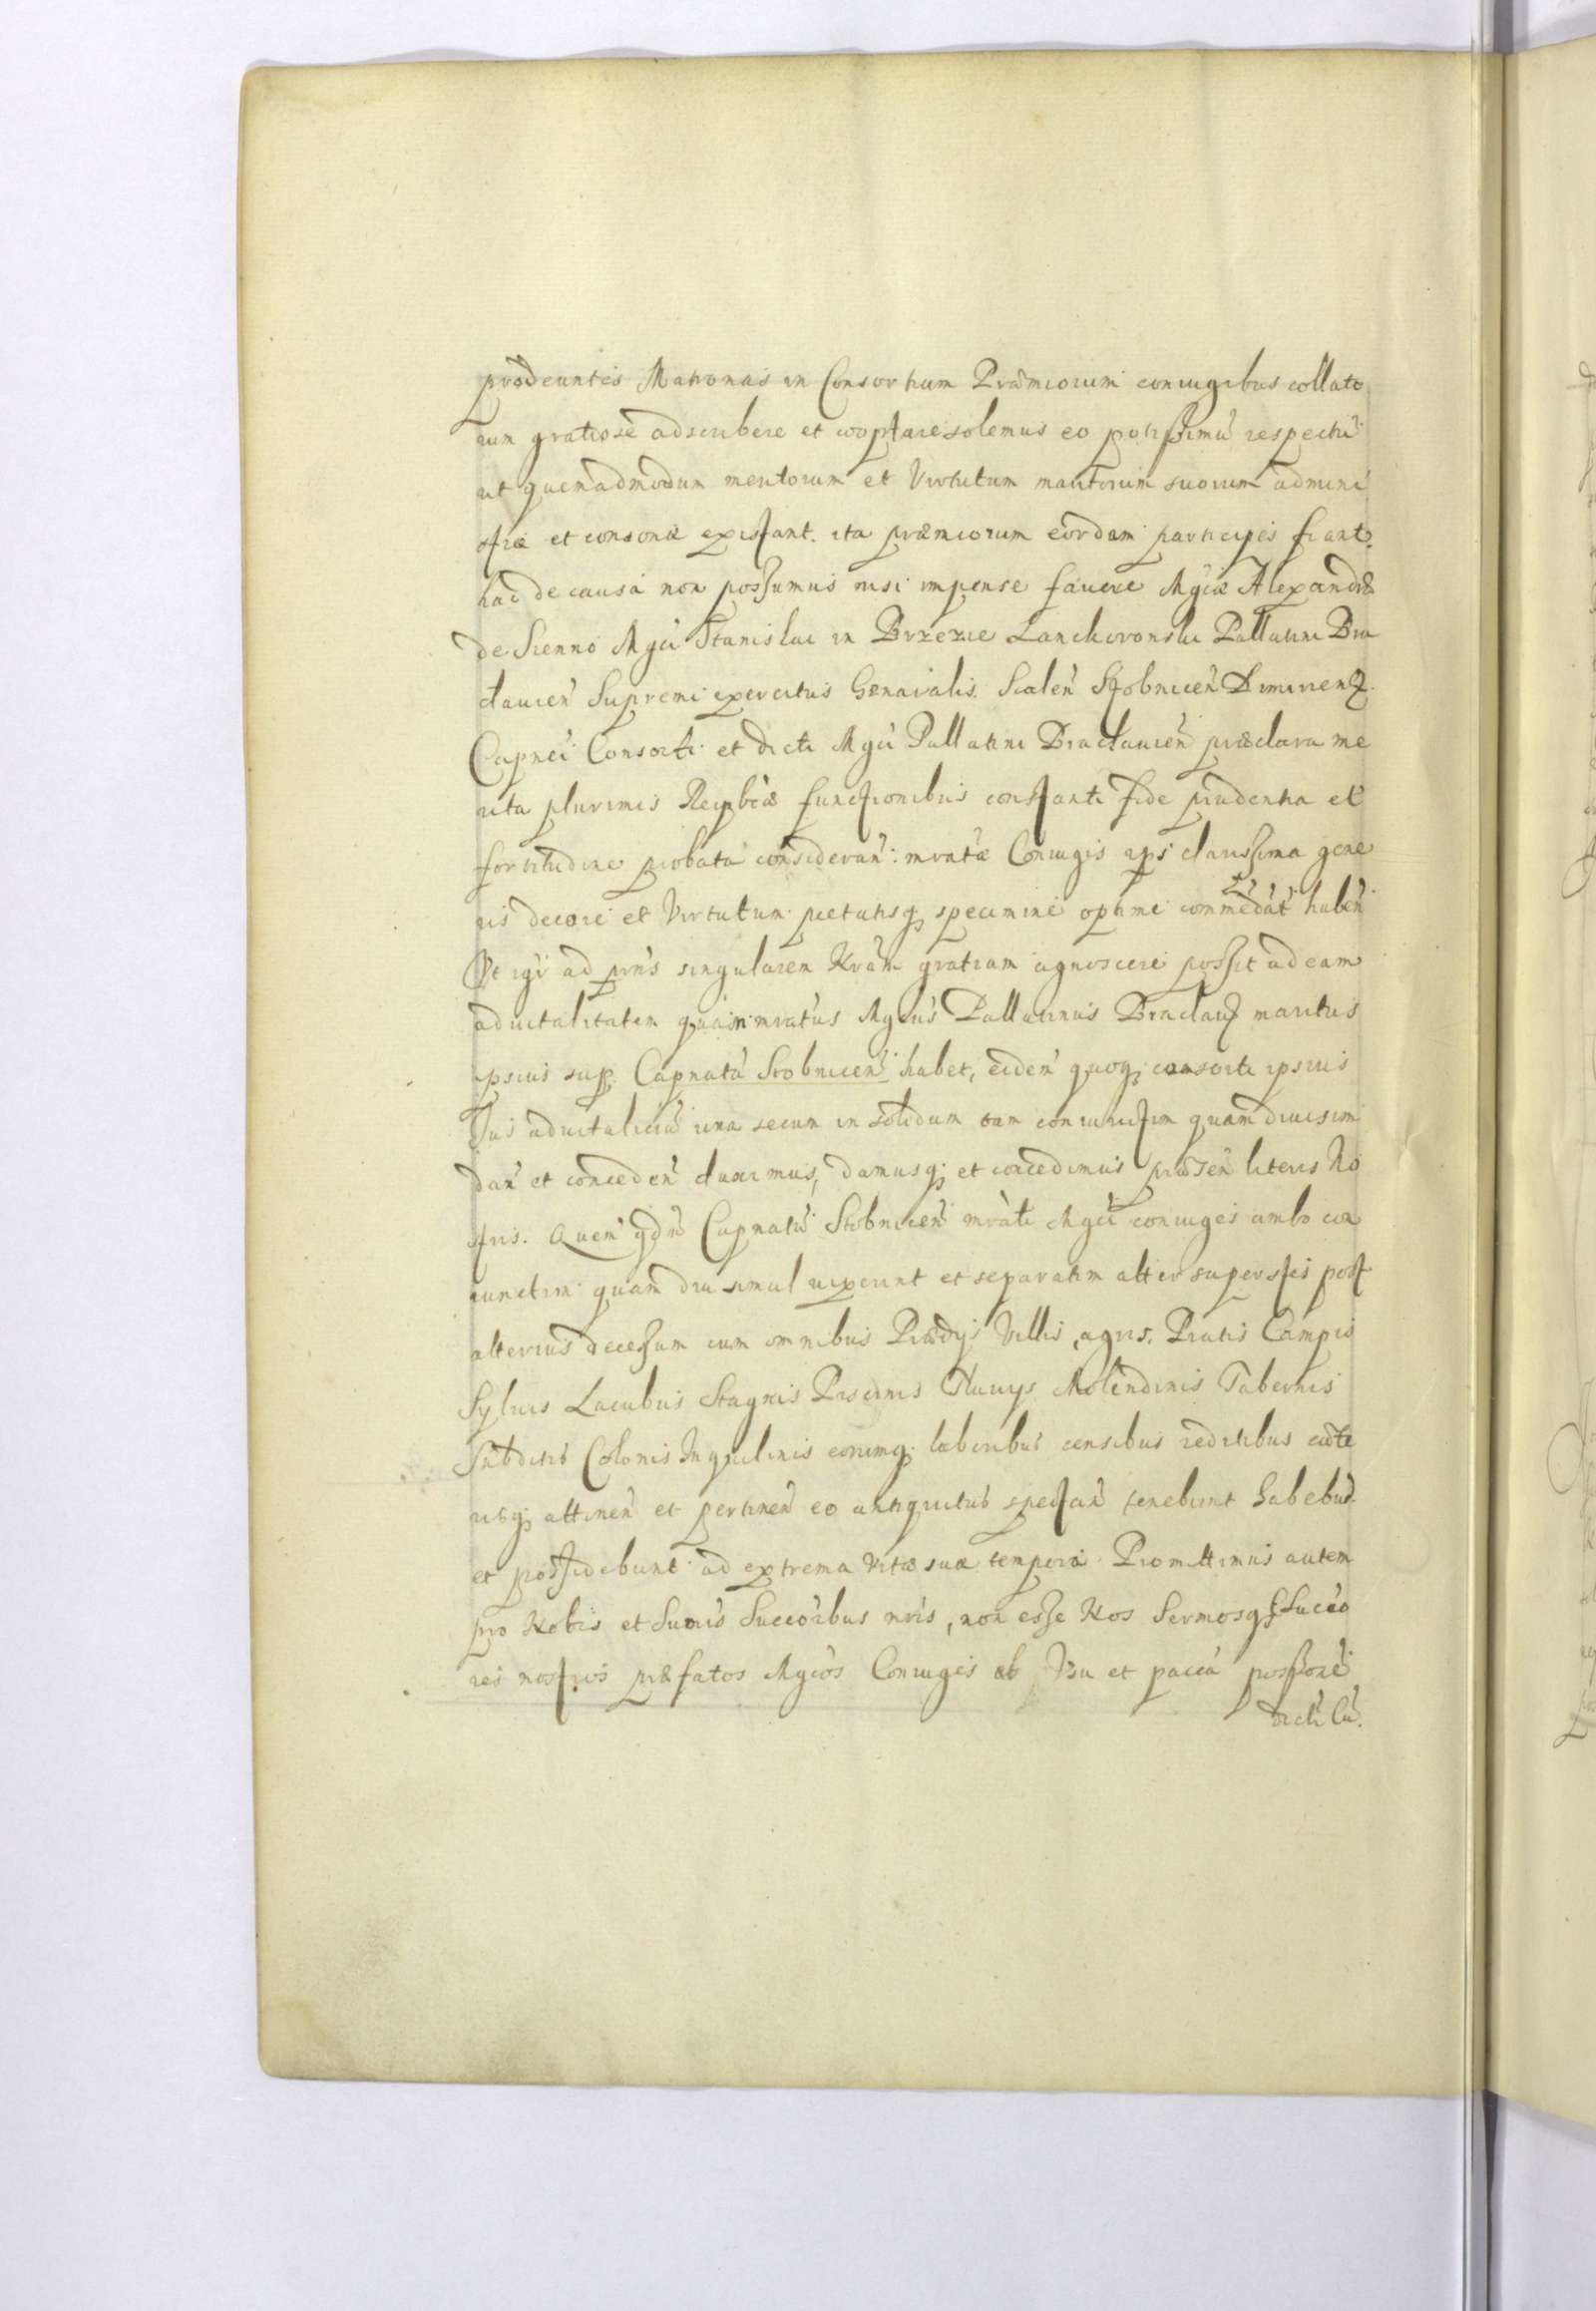 prodeuntes Matronas in Consortium Præmiorum coniugibus collato
rum gratiose adscribere et cooptare solemus eo potissimũ respectu
ut quemadmodum meritorum et Virtutum maritorum suorum admini
stræ et consonæ existant. ita præmiorum eordem participes fiant.
hac de causa non possumus nisi impense fauere Mgcæ Alexandræ
de Sienno Mgci Stanislai in Brzezie Lanckoronski Pallatini Bra
clauien Supremi exercitus Genaralis. Scalen Stobnicen Dimirienz.
Capnei Consorti. et dicti Mgci Pallatini Braclauien præclara me
rita plurimis Reipbcæ functionibus constanti fide prudentia et
fortitudine probata consideran: mratæ Coniugis ips clarissima gene
ris decore et Virtutum pietatisq specimine optime commedat habẽn
Vt igr ad pnns singularem Nram gratiam agnoscere possit ad eam
aduitalitatem quam mratus Mgcus Pallatinus Braclauz maritus
ipsius sup Capnatu Stobnicen habet, eidem quoq consorti ipsius
Jus aduitaliciũ una secum in solidum tam coniunctim quam diuisim
dan et conceden duximus, damusq et concedimus præsen literis No
stris. Quem qdm Capnatũ Stobnicen mrati Mgci coniuges ambo con
iunctim quam diu simul uixerint et separatim alter superstes post
alterius decessum cum omnibus Prædijs Villis, agris, Pratis Campis
Syluis Lacubus Stagnis Piscinis Fluuijs Molendinis Tabernis
Subditis Colonis Inquilinis eorumq laboribus censibus reditibus cæte
risq attinen et pertinen eo antiquitus spectan tenebunt habebũt
et possidebunt ad extrema vitæ suæ tempora. Promittimus autem
pro Nobis et Sermis Succoribus nris, non esse Nos Sermosq Succo
res nostros præfatos Mgcos Coniuges ab Vsu et pacca possone
dicti Ca.